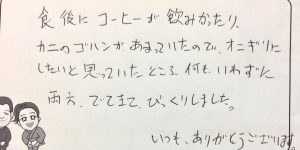 食後にコーヒーが飲みたかったり、
カニのゴハンがあまっていたので、オニギリに
したいと思っていたところ、何も、いわずに
両方、でてきて、びっくりしました。
いつも、ありがとうございます。